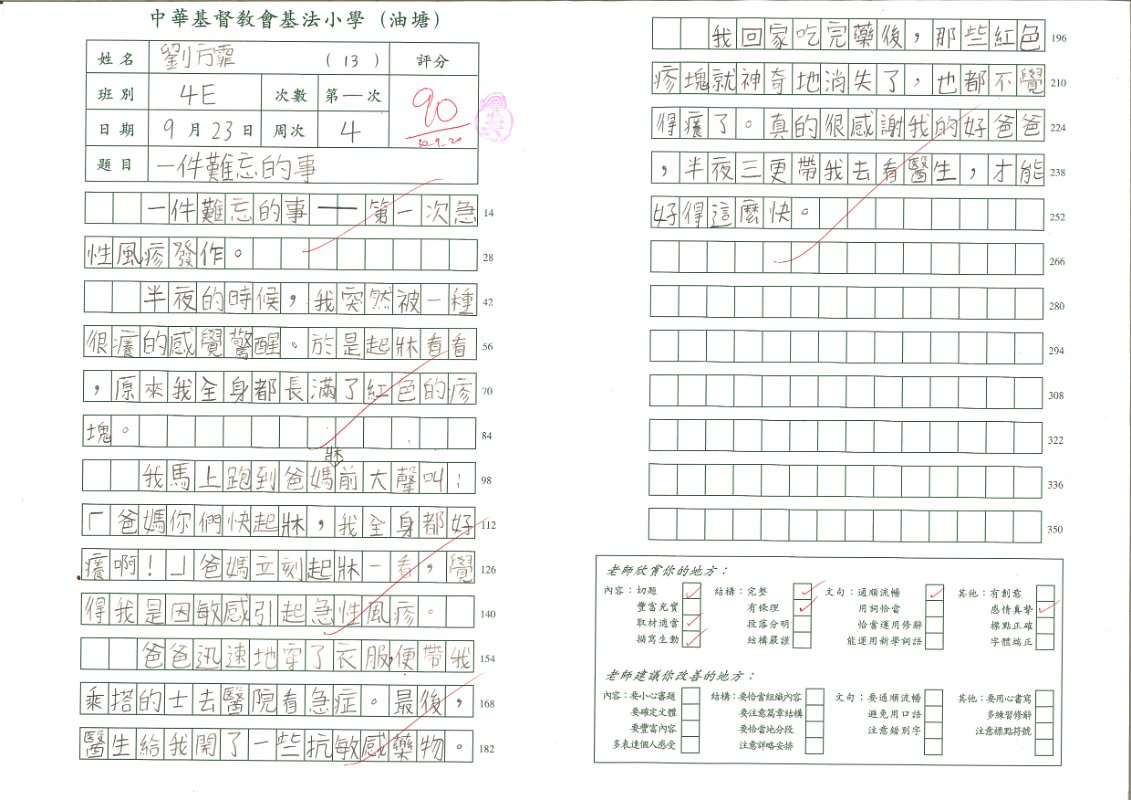 中華基督教會基法小學（油塘）
姓名 劉 霏 （13） 評分
班別 4E 次數 第一次 90
日期 9月23日 周次 4 30-9-20
題目 一件難忘的事
一件難忘的事——第一次急 14
性風疹發作。 28
半夜的時候，我突然被一種 42
很癢的感覺驚醒。於是起牀看看 56
，原來我全身都長滿了紅色的疹 70
塊。 84
牀
我馬上跑到爸媽前大聲叫： 98
「爸媽你們快起牀，我全身都好 112
癢啊！」爸媽立刻起牀一看，覺 126
得我是因敏感引起急性風疹。 140
爸爸迅速地穿了衣服,便帶我 154
乘搭的士去醫院看急症。最後， 168
醫生給我開了一些抗敏感藥物。 182
我回家吃完藥後，那些紅色 196
疹塊就神奇地消失了，也都不覺 210
得癢了。真的很感謝我的好爸爸 224
，半夜三更帶我去看醫生，才能 238
好得這麼快。 252
266
280
294
308
322
336
350
老師欣賞你的地方：
內容：切題 結構：完整 文句：通順流暢 其他：有創意
豐富充實 有條理 用詞恰當 感情真摯
取材適當 段落分明 恰當運用修辭 標點正確
描寫生動 結構嚴謹 能運用新學詞語 字體端正
老師建議你改善的地方：
內容：要小心審題 結構：要恰當組織內容 文句：要通順流暢 其他：要用心書寫
要確定文體 要注意篇章結構 避免用口語 多練習修辭
要豐富內容 要恰當地分段 注意錯別字 注意標點符號
多表達個人感受 注意詳略安排